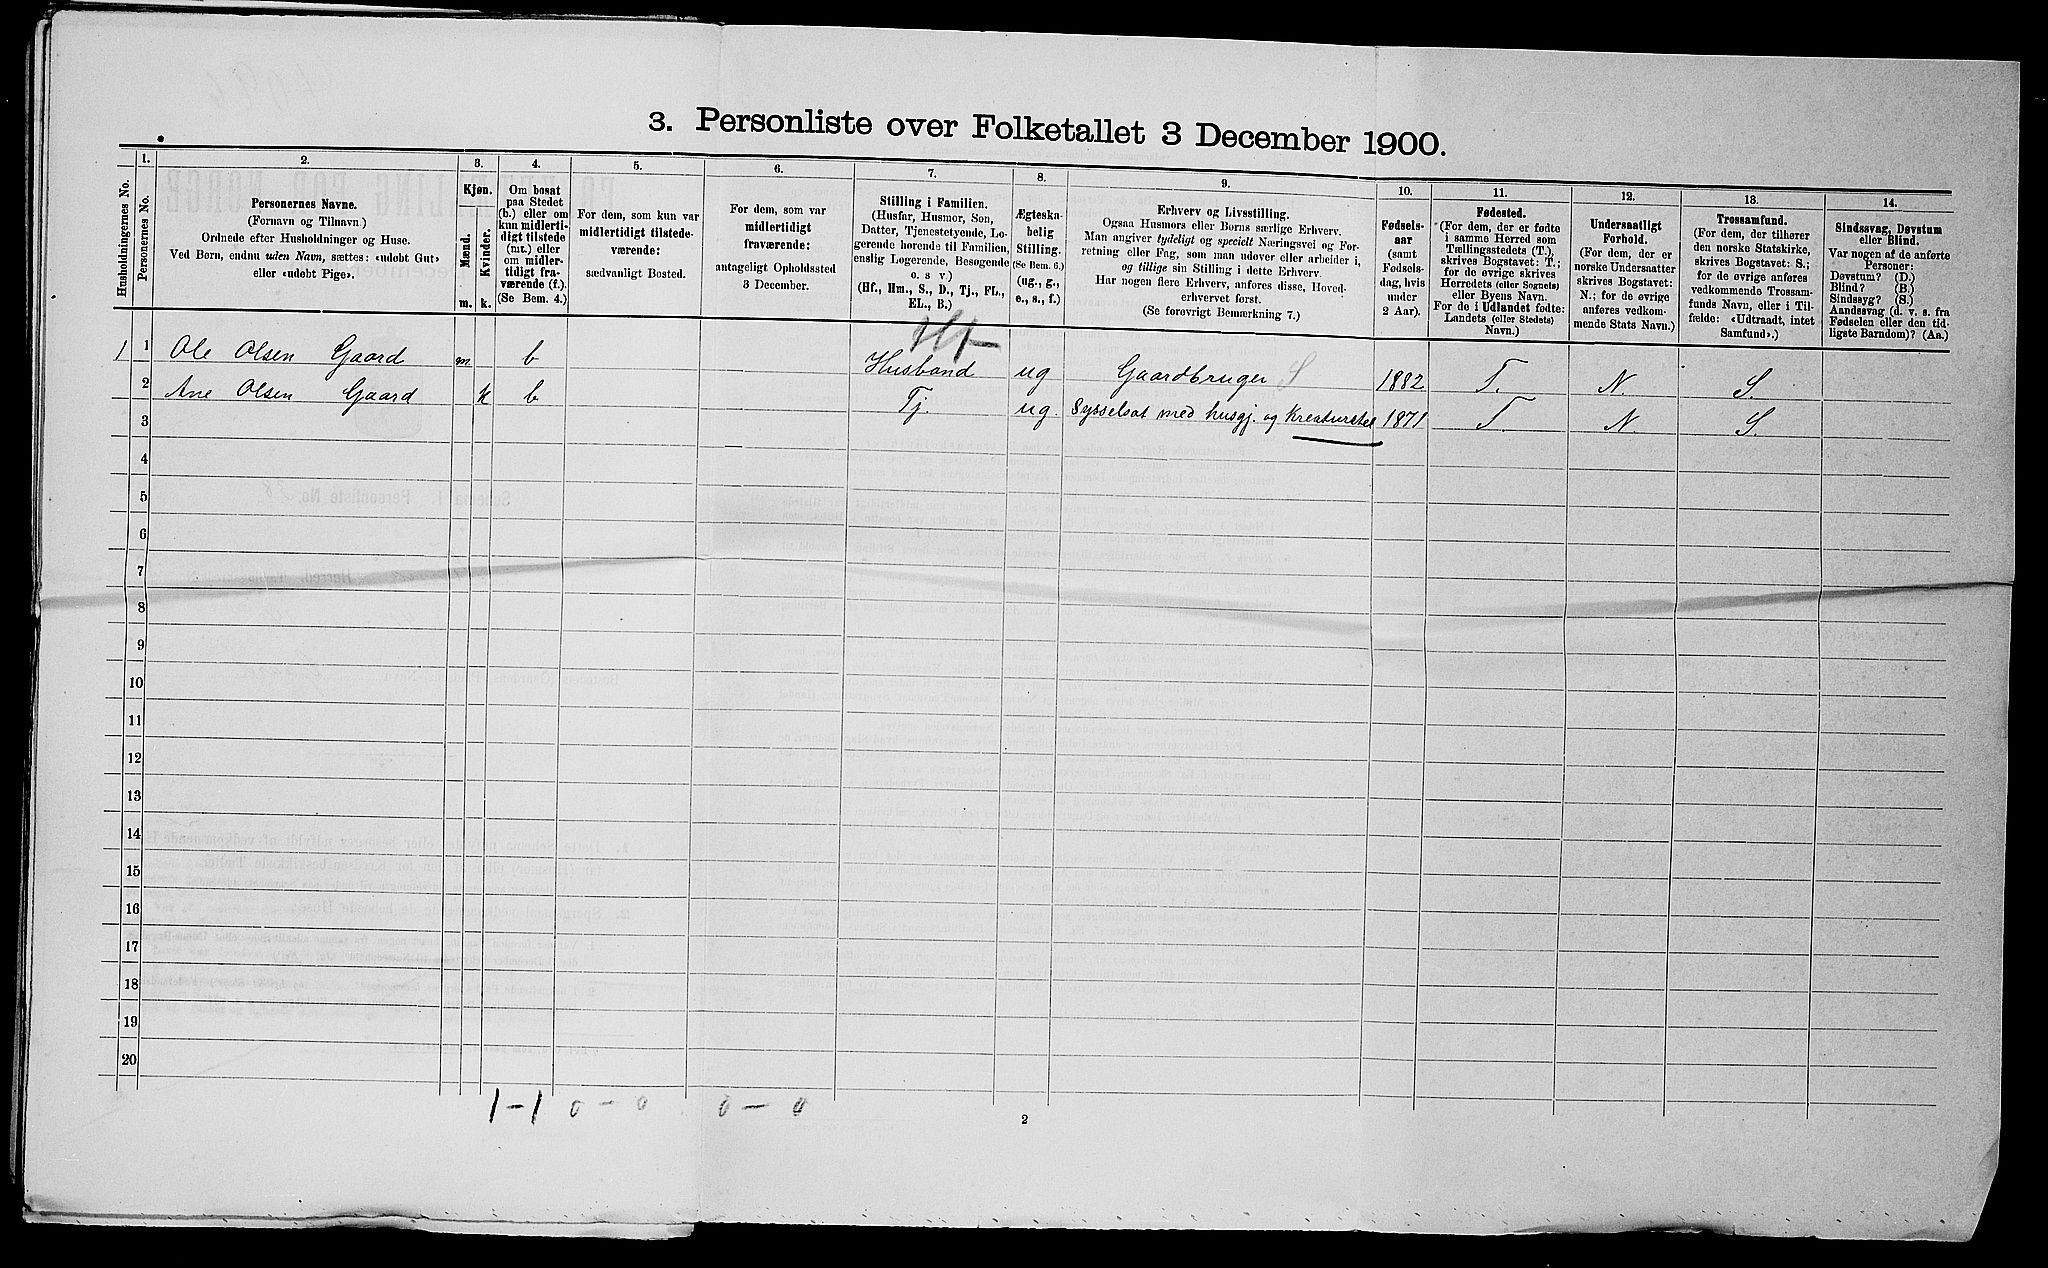 3. Personliste over Folketallet 3 December 1900.
Husholdningernes No.
1.
Personernes No.
2.
Personernes Navne.
(Fornavn og Tilnavn.)
Ordnede efter Husholdninger og Huse.
Ved Børn, endnu uden Navn, sættes: «udøbt Gut»
eller «udøbt Pige».
3.
Kjøn.
Mænd.
Kvinder.
m.
k.
4.
Om bosat
paa Stedet
(b.) eller om
kun midlerti-
digt tilstede
(mt.) eller
om midler-
tidigt fra-
værende (f.).
(Se Bem. 4.)
5.
For dem, som kun var
midlertidigt tilstede-
værende:
sædvanligt Bosted.
6.
For dem, som var
midlertidigt
fraværende:
antageligt Opholdssted
3 December.
7.
Stilling i Familien.
(Husfar, Husmor, Søn,
Datter, Tjenestetyende, Lo-
gerende hørende til Familien,
enslig Logerende, Besøgende
o. s. v.)
(Hf., Hm., S., D., Tj., FL.,
EL., B.)
8.
Ægteska-
belig
Stilling.
(Se Bem. 6.)
(ug., g.,
e., s., f.)
9.
Erhverv og Livsstilling.
Ogsaa Husmors eller Børns særlige Erhverv.
Man angiver tydeligt og specielt Næringsvei og For-
retning eller Fag, som man udøver eller arbeider i,
og tillige sin Stilling i dette Erhverv.
Har nogen flere Erhverv, anføres disse, Hoved-
erhvervet først.
(Se forøvrigt Bemærkning 7.)
10.
Fødsels-
aar
(samt
Fødsels-
dag, hvis
under
2 Aar).
11.
Fødested.
(For dem, der er fødte
i samme Herred som
Tællingsstedets (T.),
skrives Bogstavet: T.;
for de øvrige skrives
Herredets (eller Sognets)
eller Byens Navn.
For de i Udlandet fødte:
Landets (eller Stedets)
Navn.)
12.
Undersaatligt
Forhold.
(For dem, der er
norske Undersaatter
skrives Bogstavet:
N.; for de øvrige
anføres vedkom-
mende Stats Navn.)
13.
Trossamfund.
(For dem, der tilhører
den norske Statskirke,
skrives Bogstavet: S.;
for de øvrige anføres
vedkommende Trossam-
funds Navn, eller i Til-
fælde: «Udtraadt, intet
Samfund».)
14.
Sindssvag, Døvstum
eller Blind.
Var nogen af de anførte
Personer:
Døvstum? (D.)
Blind? (B.)
Sindssyg? (S.)
Aandssvag (d. v. s. fra
Fødselen eller den tid-
ligste Barndom)? (Aa.)
Hf
1 1 Ole Olsen Gaard m b Husbond ug Gaardbruger S 1882 T. N. S.
2 Ane Olsen Gaard k b Tj. ug. Sysselsat med husgj. og Kreaturstel 1871 T. N. S.
3
4
5
6
7
8
9
10
11
12
13
14
15
16
17
18
19
20
1 - 1 0 - 0 0 - 0
2